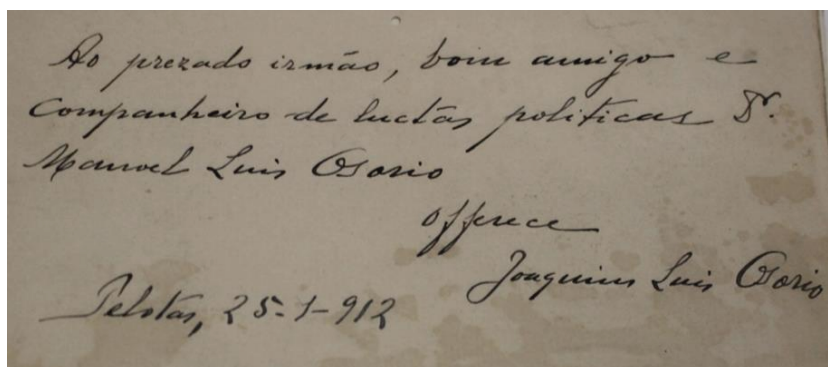 Ao prezado irmão, bom amigo e
companheiro de luctas politicas Dr.
Manoel Luis Osorio
offerece
Joaquim Luis Osorio
Pelotas, 25-1-912